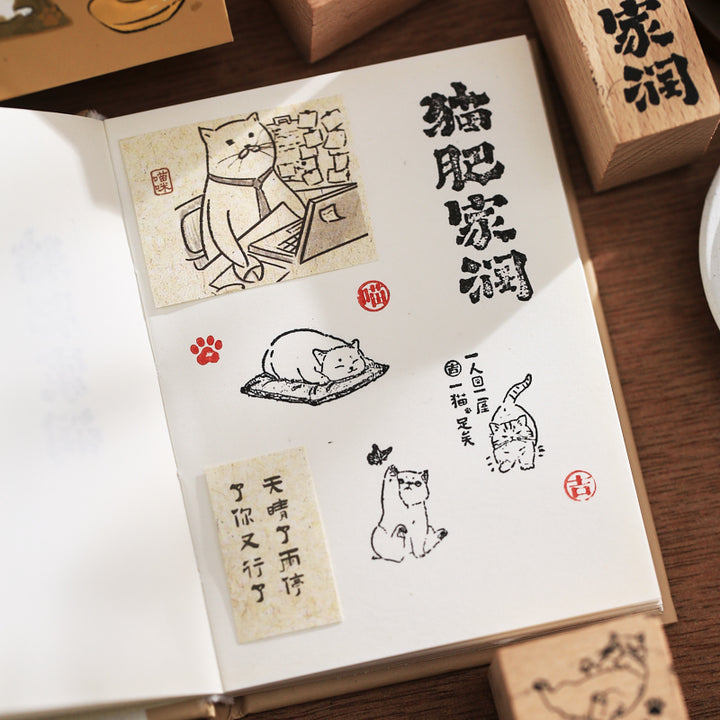 猫肥家润
喵咪
喵
一人一屋
一猫足矣
吉
天晴了雨停
了你又行了
家润